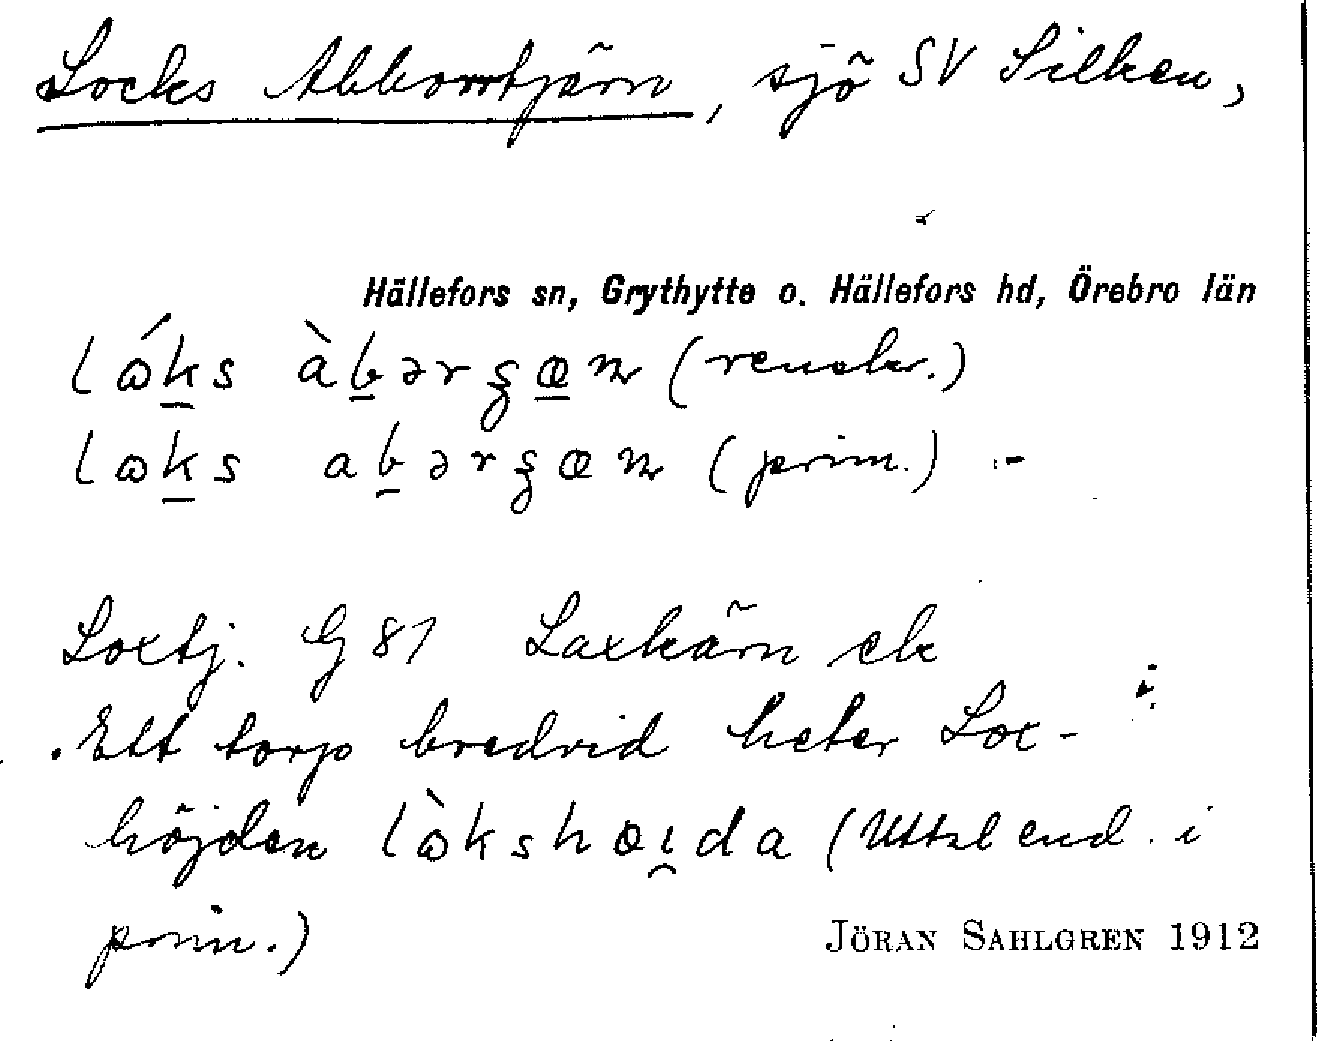 Locks Abborrtjärn, sjö SV Silken,
Hällefors sn, Grythytte o. Hällefors hd, Örebro län
lɷ́ks àbərʂœn (renskr.)
lɷks abərʂœn (prim.) :-
Loxtj. G 81 Laxkärn ek
Ett torp bredvid heter Lox-
höjden lɷ̀kshœi̯da (Uttal end. i
prim.) JÖRAN SAHLGREN 1912